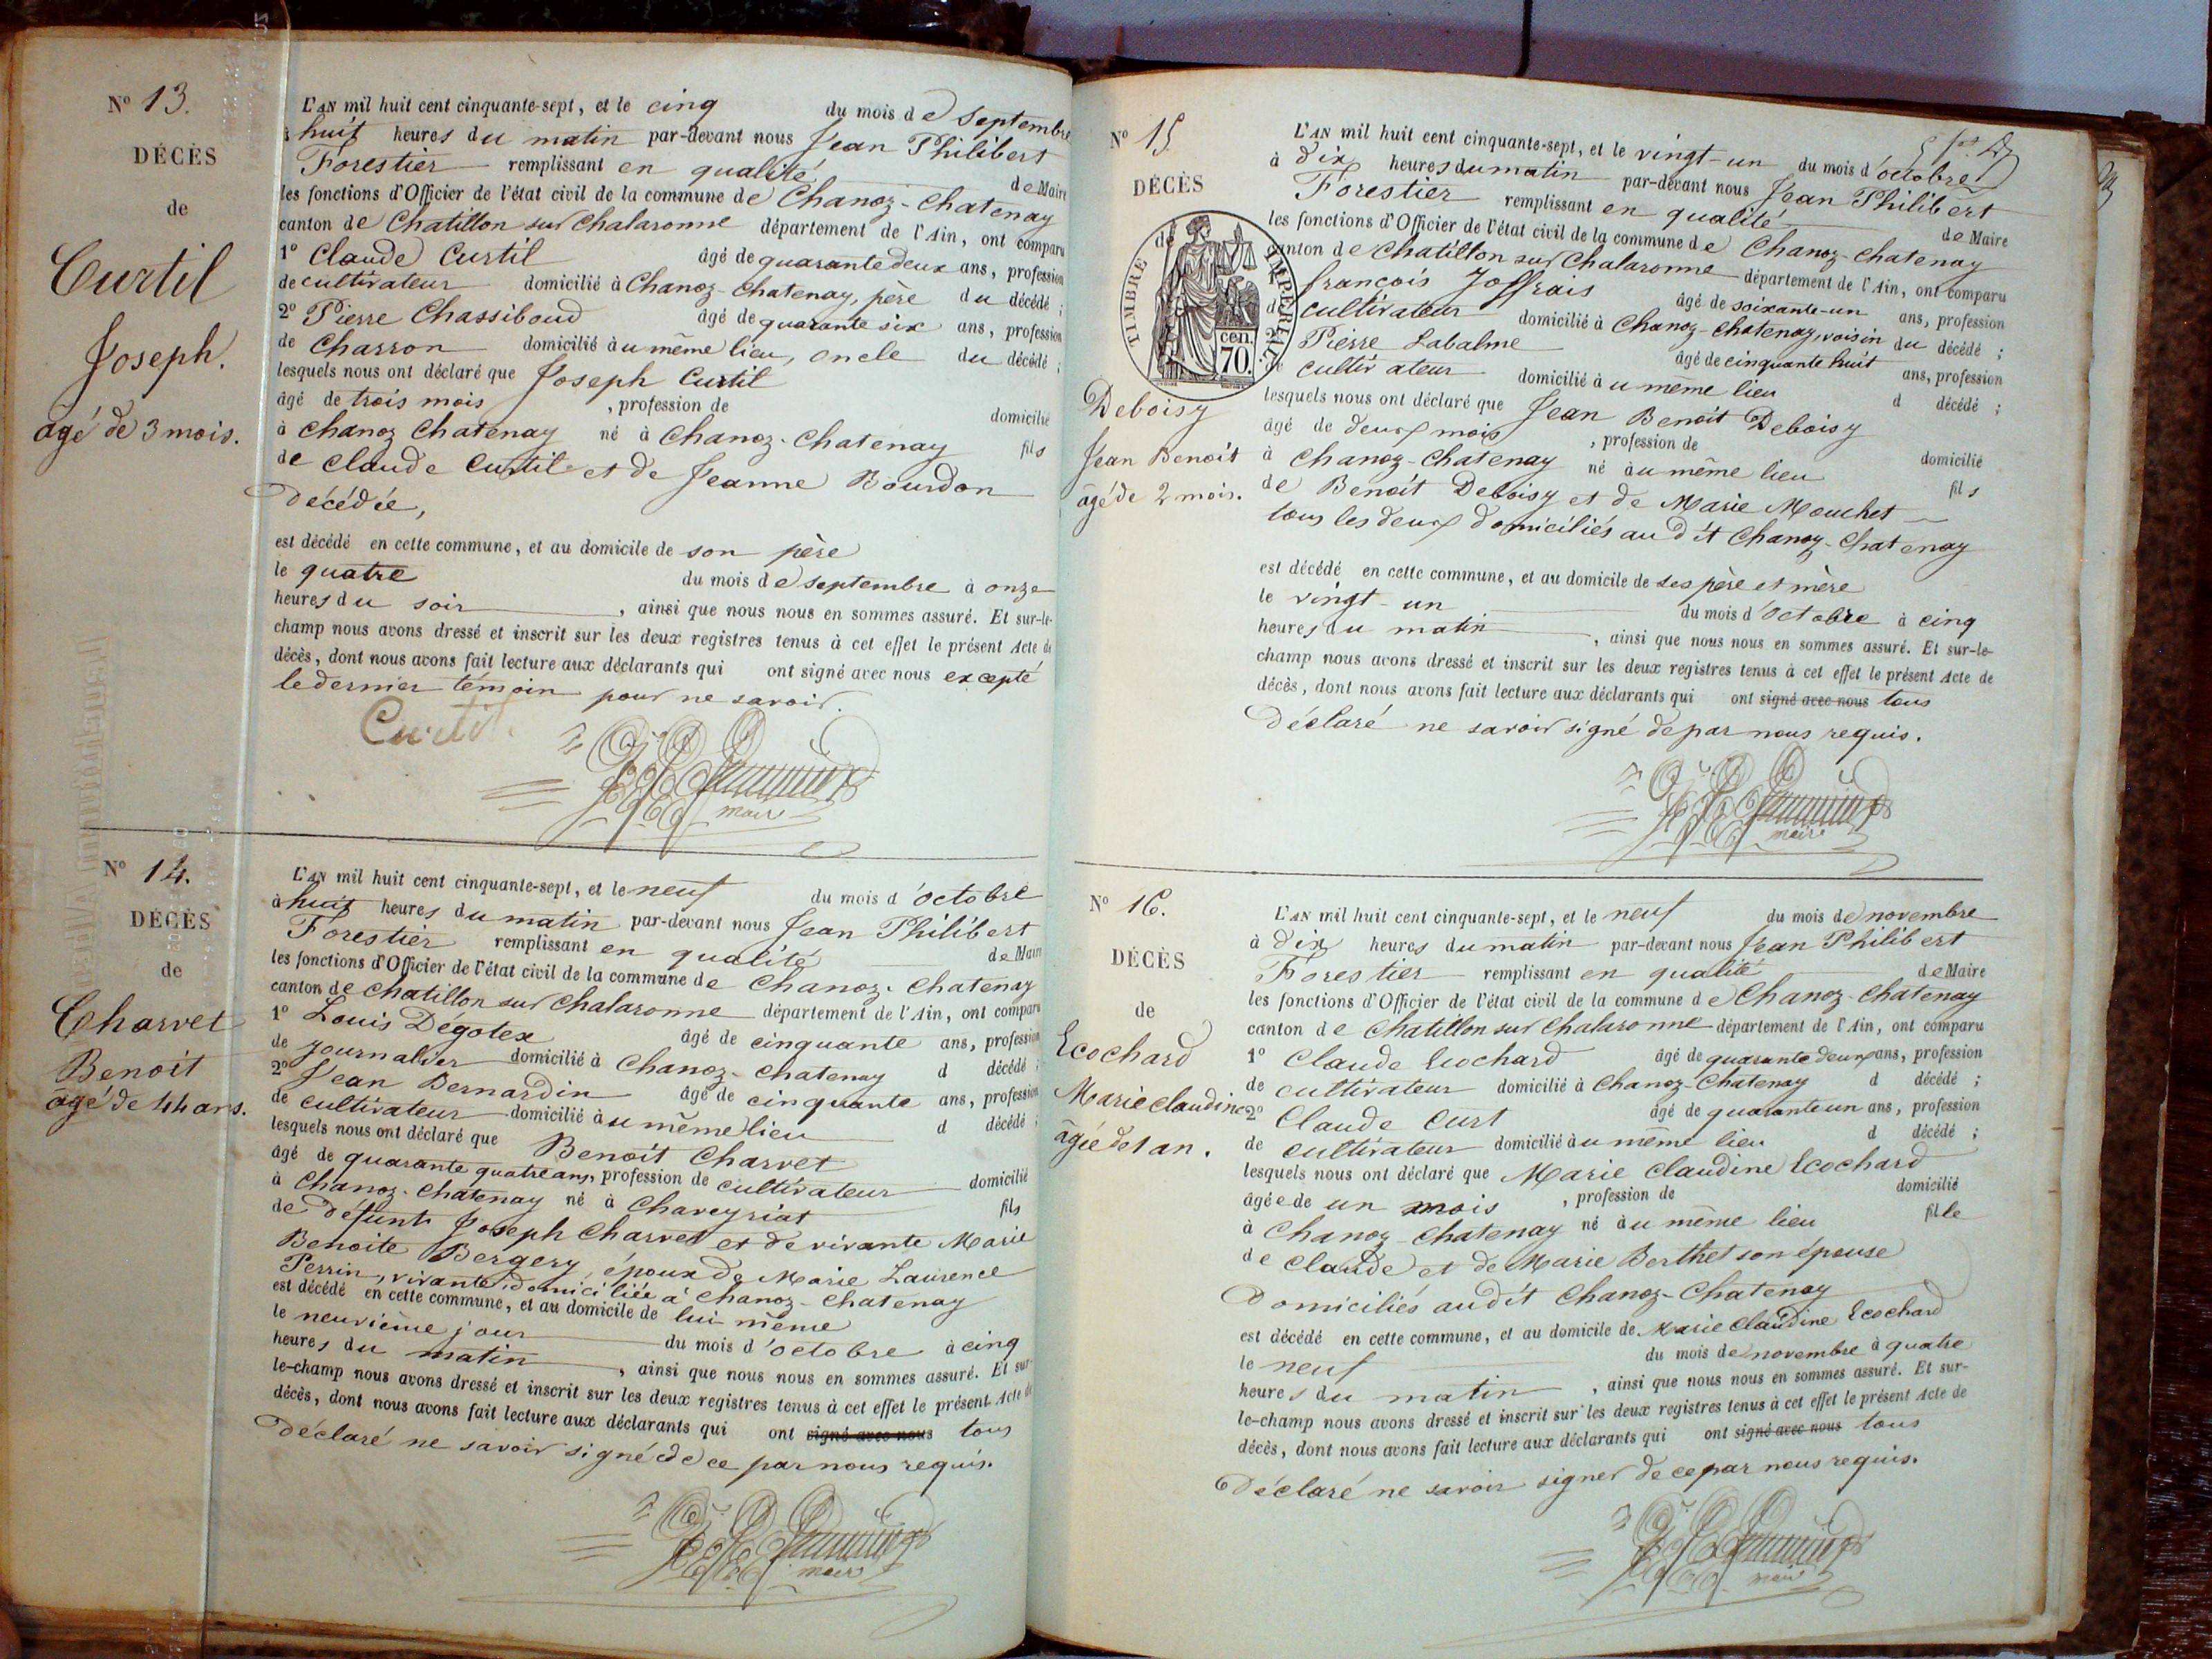 N° 13.
DÉCÈS
de
Curtil
Joseph.
âgé de 3 mois.
L'AN mil huit cent cinquante-sept, et le cinq du mois de Septembre
à huit heures du matin par-devant nous Jean Philibert
Forestier remplissant en qualité de Maire
les fonctions d'Officier de l'état civil de la commune de Chanoz-Chatenay
canton de Chatillon sur Chalaronne département de l'Ain, ont comparu
1° Claude Curtil âgé de quarante deux ans, profession
de cultivateur domicilié à Chanoz-Chatenay, père du décédé ;
2° Pierre Chassiboud âgé de quarante six ans, profession
de Charron domicilié au même lieu, oncle du décédé ;
lesquels nous ont déclaré que Joseph Curtil
âgé de trois mois , profession de domicilié
à Chanoz Chatenay né à Chanoz-Chatenay fils
de Claude Curtil et de Jeanne Bourdon
décédée,
est décédé en cette commune, et au domicile de son père
le quatre du mois de septembre à onze
heures du soir , ainsi que nous nous en sommes assuré. Et sur-le-
champ nous avons dressé et inscrit sur les deux registres tenus à cet effet le présent Acte de
décès, dont nous avons fait lecture aux déclarants qui ont signé avec nous excepté
le dernier témoin pour ne savoir.
Curtil
maire
N° 14.
DÉCÈS
de
Charvet
Benoit
âgé de 44 ans.
L'AN mil huit cent cinquante-sept, et le neuf du mois d'octobre
à huit heures du matin par-devant nous Jean Philibert
Forestier remplissant en qualité de Maire
les fonctions d'Officier de l'état civil de la commune de Chanoz-Chatenay
canton de Chatillon sur Chalaronne département de l'Ain, ont comparu
1° Louis Dégotex âgé de cinquante ans, profession
de journalier domicilié à Chanoz-Chatenay d décédé ;
2° Jean Bernardin âgé de cinquante ans, profession
de cultivateur domicilié au même lieu d décédé ;
lesquels nous ont déclaré que Benoit Charvet
âgé de quarante quatre ans, profession de cultivateur domicilié
à Chanoz-Chatenay né à Chaveyriat fils
de défunt Joseph Charvet et de vivante Marie
Benoite Bergery, époux de Marie Laurence
Perrin, vivante domiciliée à Chanoz-Chatenay
est décédé en cette commune, et au domicile de lui-même
le neuvième jour du mois d'octobre à cinq
heures du matin , ainsi que nous nous en sommes assuré. Et sur-
le-champ nous avons dressé et inscrit sur les deux registres tenus à cet effet le présent Acte de
décès, dont nous avons fait lecture aux déclarants qui ont signé avec nous tous
déclaré ne savoir signé de ce par nous requis.
maire
N° 15
DÉCÈS
TIMBRE IMPÉRIAL
cen. 70.
Deboisy
Jean Benoit
âgé de 2 mois.
L'AN mil huit cent cinquante-sept, et le vingt-un du mois d'octobre
à dix heures du matin par-devant nous Jean Philibert
Forestier remplissant en qualité de Maire
les fonctions d'Officier de l'état civil de la commune de Chanoz-Chatenay
canton de Chatillon sur Chalaronne département de l'Ain, ont comparu
françois Joffrais âgé de soixante-un ans, profession
de cultivateur domicilié à Chanoz-Chatenay, voisin du décédé ;
Pierre Labalme âgé de cinquante huit ans, profession
de cultivateur domicilié au même lieu d décédé ;
lesquels nous ont déclaré que Jean Benoit Deboisy
âgé de deux mois , profession de domicilié
à Chanoz-Chatenay né au même lieu fils
de Benoit Deboisy et de Marie Mouchet
tous les deux domiciliés au dit Chanoz-Chatenay
est décédé en cette commune, et au domicile de ses père et mère
le vingt-un du mois d'octobre à cinq
heures du matin , ainsi que nous nous en sommes assuré. Et sur-le-
champ nous avons dressé et inscrit sur les deux registres tenus à cet effet le présent Acte de
décès, dont nous avons fait lecture aux déclarants qui ont signé avec nous tous
déclaré ne savoir signé de par nous requis.
maire
N° 16.
DÉCÈS
de
Ecochard
Marie Claudine
âgée de 1 an.
L'AN mil huit cent cinquante-sept, et le neuf du mois de novembre
à dix heures du matin par-devant nous Jean Philibert
Forestier remplissant en qualité de Maire
les fonctions d'Officier de l'état civil de la commune de Chanoz-Chatenay
canton de Chatillon sur Chalaronne département de l'Ain, ont comparu
1° Claude Ecochard âgé de quarante deux ans, profession
de cultivateur domicilié à Chanoz-Chatenay d décédé ;
2° Claude Curt âgé de quarante un ans, profession
de cultivateur domicilié au même lieu d décédé ;
lesquels nous ont déclaré que Marie Claudine Ecochard
âgée de un mois , profession de domicilié
à Chanoz-Chatenay né au même lieu fille
de Claude et de Marie Berthet son épouse
Domiciliés au dit Chanoz-Chatenay
est décédé en cette commune, et au domicile de Marie Claudine Ecochard
le neuf du mois de novembre à quatre
heures du matin , ainsi que nous nous en sommes assuré. Et sur-
le-champ nous avons dressé et inscrit sur les deux registres tenus à cet effet le présent Acte de
décès, dont nous avons fait lecture aux déclarants qui ont signé avec nous tous
déclaré ne savoir signer de ce par nous requis.
maire